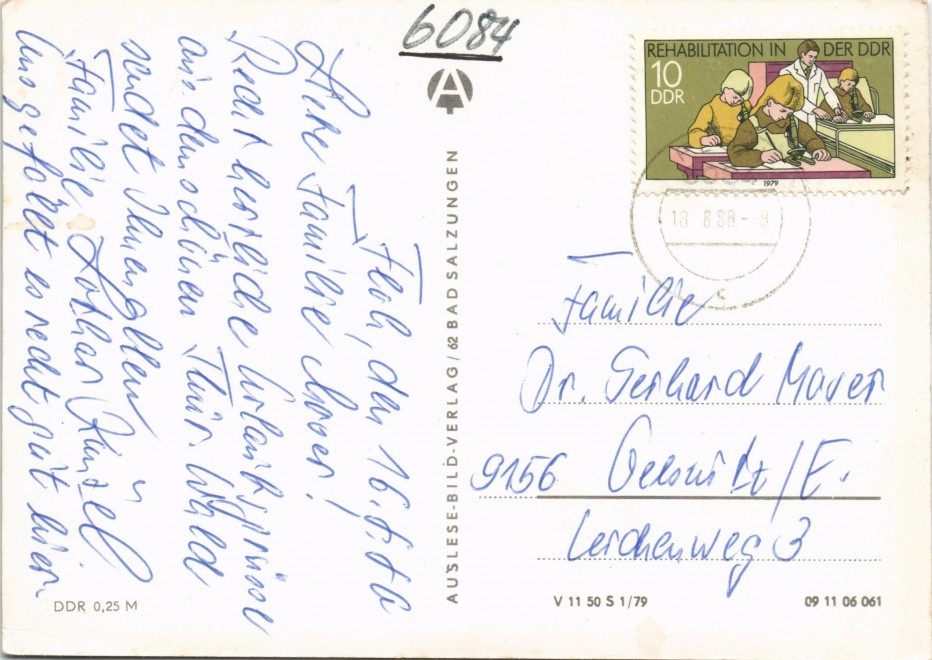 6084
REHABILITATION IN DER DDR
10
DDR
1979
18 8.80.- 8
c
Floh, den 16.8.80
Liebe Familie Moser!
Recht herzliche Urlaubsgrüsse
aus dem schönen Thür. Wald
sendet Ihnen allen
Familie Lothar
Uns gefällt es recht gut hier
AUSLESE-BILD-VERLAG / 62 BAD SALZUNGEN
Familie
Dr. Gerhard Moser
9156 Oelsnitz/E.
Lerchenweg 3
DDR 0,25 M
V 11 50 S 1/79
09 11 06 061